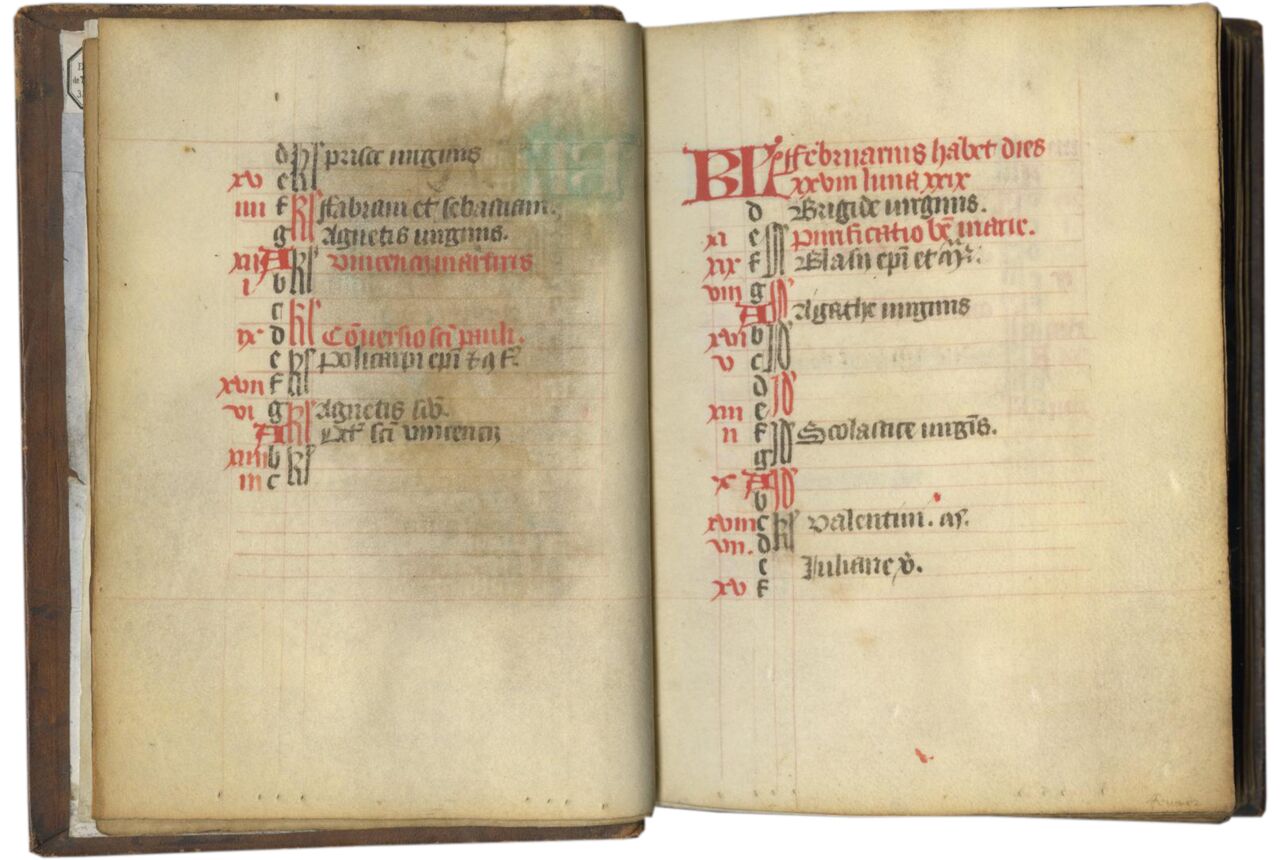 d kl prisce uirginis
xv e kl
iiii f kl ffabiani et sebastiani.
g kl Agnetis uirginis.
xii A kl vincencij martiris
i b kl
c kl
ix d kl Cōuersio scī pauli.
e kl Policarpi epī
xvii f kl
vi g kl Agnetis
A kl Oct scī vincencij
xiiii b kl
iii c kl
KL ffebruarius habet dies
xxviii luna xxix
d Brigide uirginis.
xi e Purificatio bē marie.
xix f Blasij epī et
viii g
A Agathe uirginis
xvi b
v c
d
xiii e
ii f Scolastice uirgīs.
g
x A
b
xviii c kl Valentini.
vii. d
e Juliane v̄.
xv f